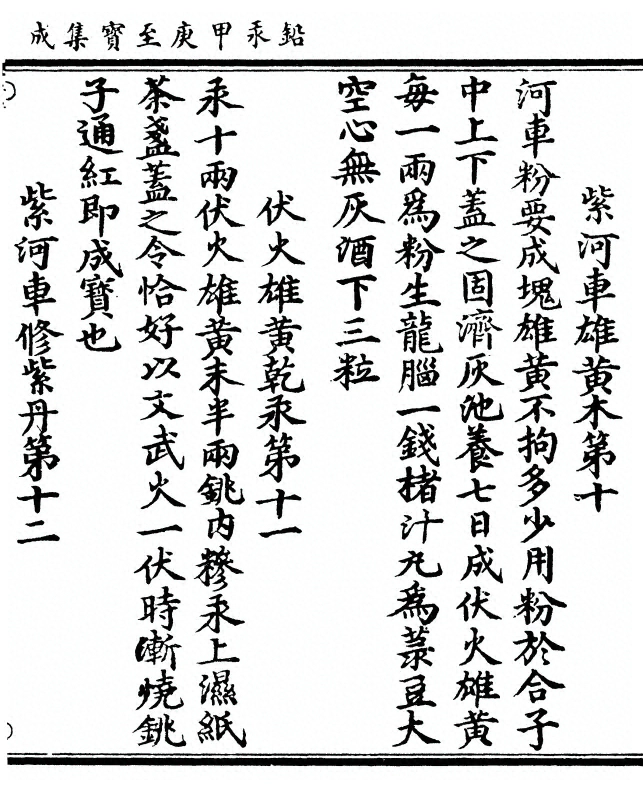 鉛汞甲庚至寶集成
紫河車雄黃木第十
河車粉要成塊雄黃不拘多少用粉於合子
中上下蓋之固濟灰池養七日成伏火雄黃
每一兩為粉生龍腦一錢楮汁丸為菉豆大
空心無灰酒下三粒
伏火雄黃乾汞第十一
汞十兩伏火雄黃末半兩銚內糝汞上濕紙
茶盞蓋之令恰好以文武火一伏時漸燒銚
子通紅即成寶也
紫河車修紫丹第十二